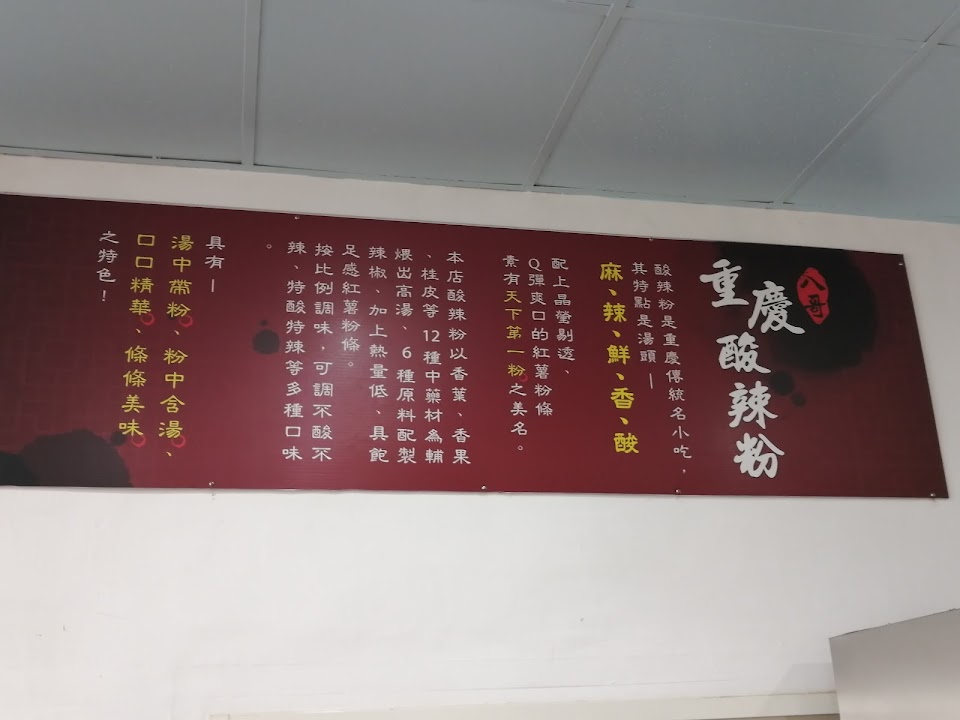 八哥
重慶酸辣粉
酸辣粉是重慶傳統名小吃，
其特點是湯頭—
麻、辣、鮮、香、酸
配上晶瑩剔透、
Q彈爽口的紅薯粉條
素有天下第一粉之美名。
本店酸辣粉以香葉、香果
、桂皮等12種中藥材為輔
煨出高湯、6種原料配製
辣椒、加上熱量低、具飽
足感紅薯粉條。
按比例調味，可調不酸不
辣、特酸特辣等多種口味
。
具有—
湯中帶粉、粉中含湯、
口口精華、條條美味
之特色！